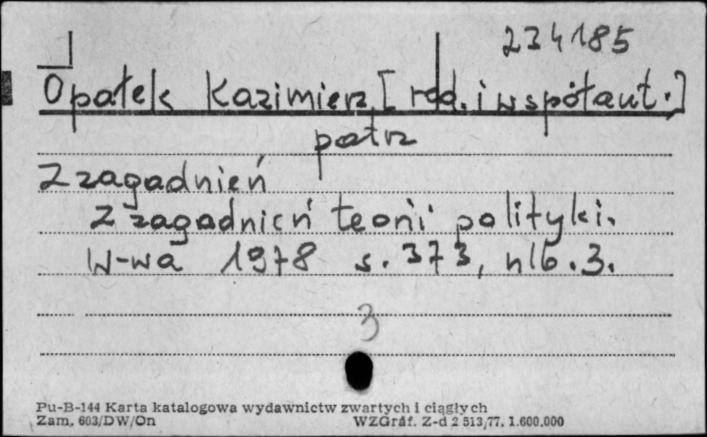 234185
Opałek Kazimierz [red. i współaut.]
patrz
Z zagadnień
Z zagadnień teorii polityki.
W-wa 1978 s. 373, nlb. 3.
3
Pu-B-144 Karta katalogowa wydawnictw zwartych i ciągłych
Zam. 603/DW/On WZGraf. Z-d 2 513/77. 1.600.000